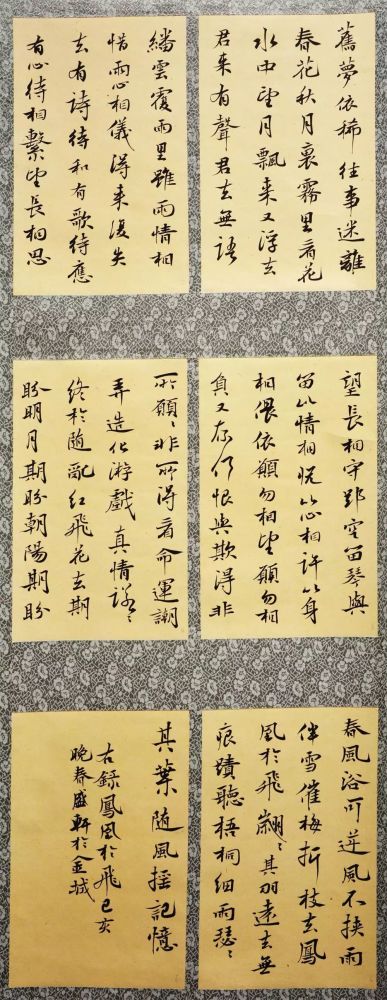 舊夢依稀往事迷離
春花秋月裏霧里看花
水中望月飄来又浮去
君来有聲君去無語
繙雲覆雨里雖兩情相
惜兩心相儀得来復失
去有詩待和有歌待應
有心待相繫望長相思
望長相守卻空留琴與
笛以情相悦以心相許以身
相偎依願勿相望願勿相
負又奈何恨與欺得非
所願〻非所得看命運嘲
弄造化游戲真情諾〻
終於随亂紅飛花去期
盼明月期盼朝陽期盼
春風浴可逆風不挾雨
伴雪催梅折枝去鳳
凰於飛翽〻其羽遠去無
痕蹟聽梧桐細雨瑟〻
其葉随風揺記憶
右録鳳凰於飛己亥
晚春盛軒於金城